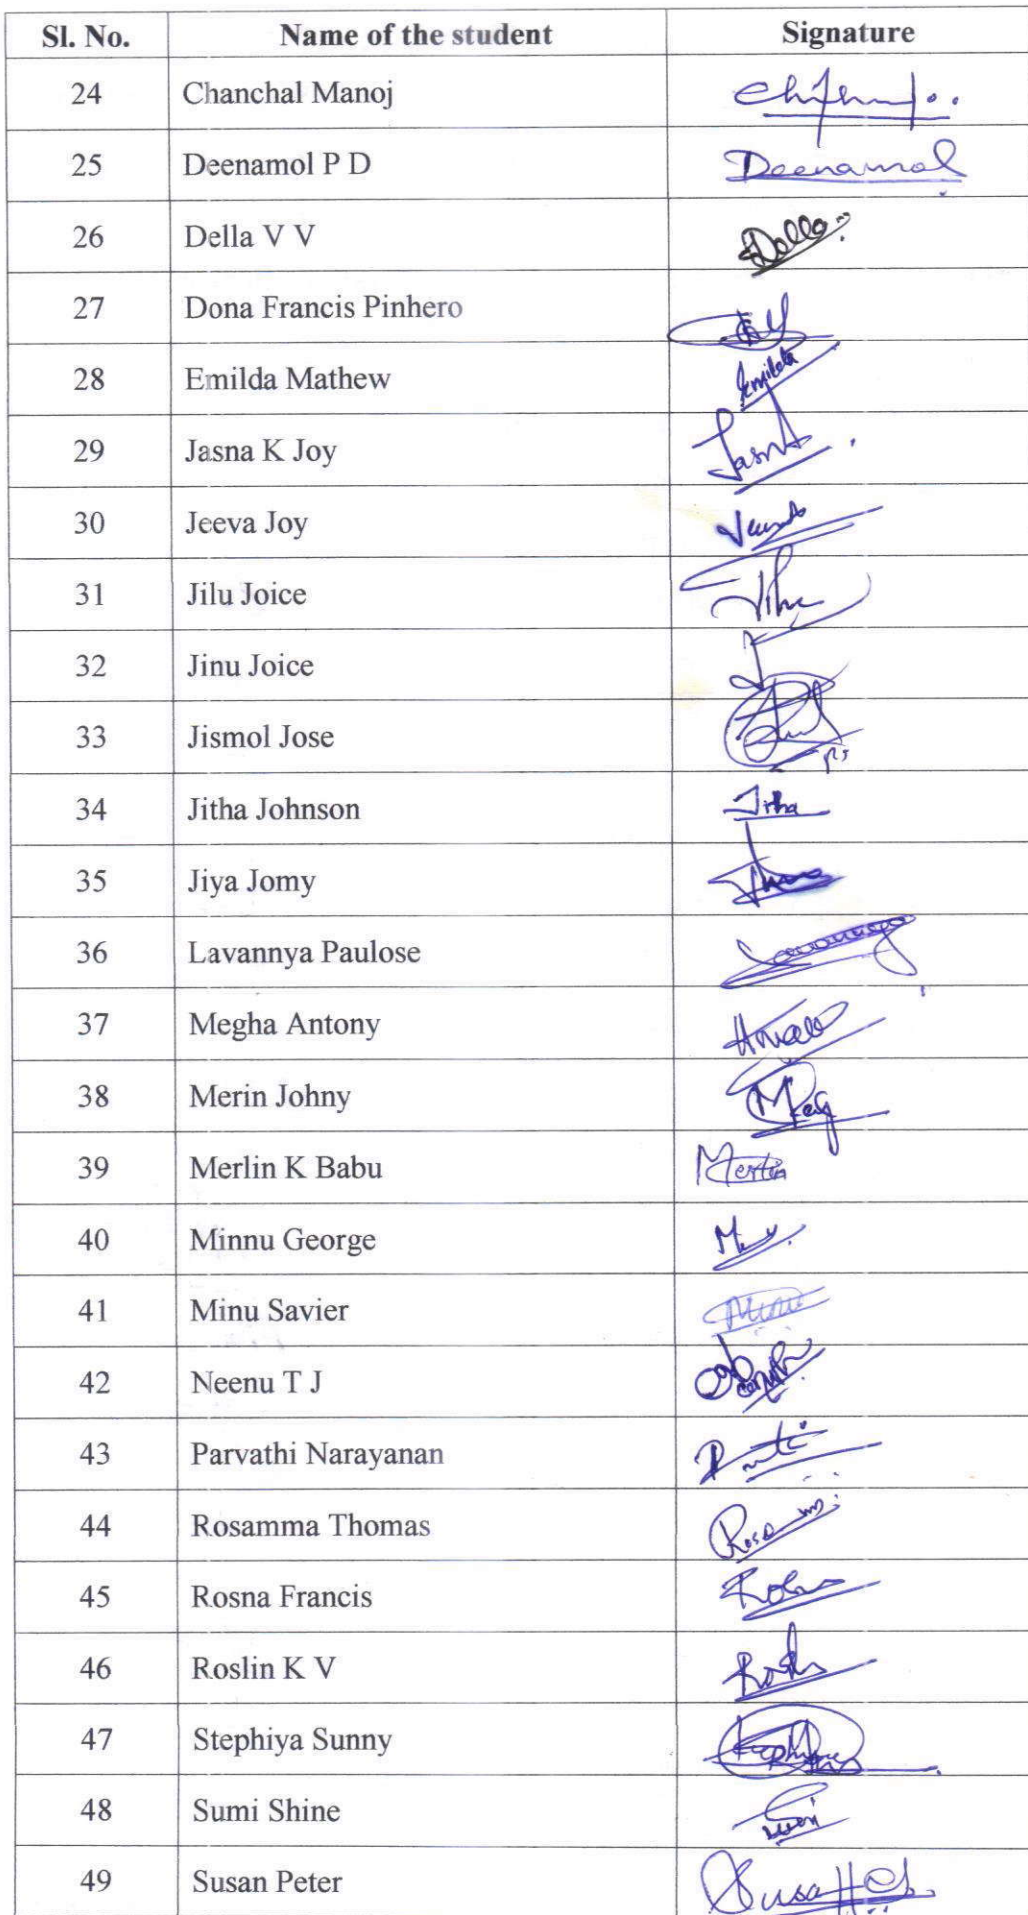 Sl. No. Name of the student Signature
24 Chanchal Manoj
25 Deenamol P D Deenamol
26 Della V V Della
27 Dona Francis Pinhero
28 Emilda Mathew Emilda
29 Jasna K Joy Jasna
30 Jeeva Joy
31 Jilu Joice
32 Jinu Joice
33 Jismol Jose
34 Jitha Johnson Jitha
35 Jiya Jomy
36 Lavannya Paulose
37 Megha Antony
38 Merin Johny
39 Merlin K Babu Merlin
40 Minnu George
41 Minu Savier Minu
42 Neenu T J
43 Parvathi Narayanan
44 Rosamma Thomas
45 Rosna Francis
46 Roslin K V
47 Stephiya Sunny
48 Sumi Shine
49 Susan Peter